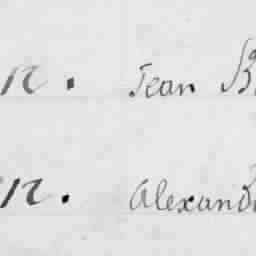 n. Jean B
n. Alexand